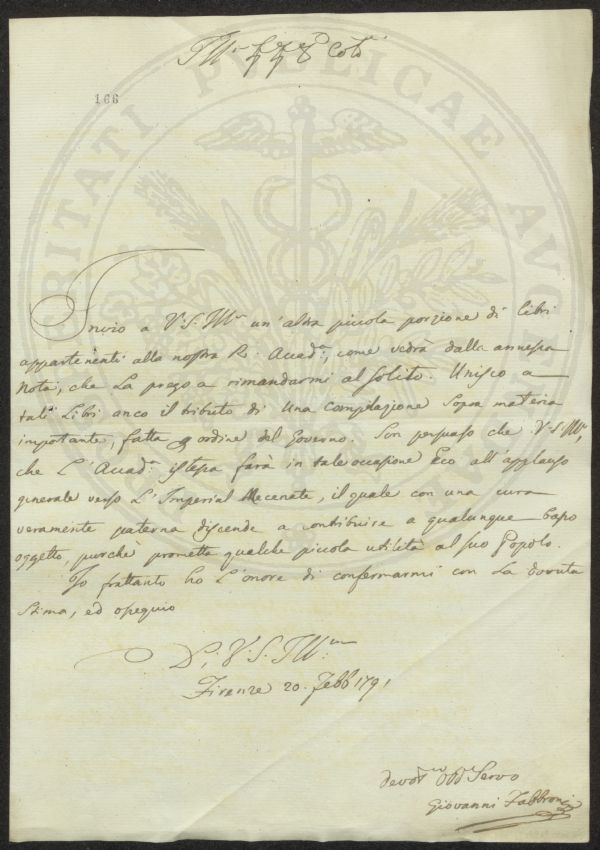 Ill.mo Sig.r Sig.r P.ron Col.mo
166
Invio a V.S. Ill.ma un'altra piccola porzione di libri
appartenenti alla nostra R. Accad.a, come vedrà dalla annessa
Nota, che La prego a rimandarmi al Solito. Unisco a
tali Libri anco il tributo di Una Compilazione Sopra materia
importante, fatta p ordine del Governo. Son persuaso che V.S. Ill.ma,
che L'Accad.a istessa farà in tale occasione Eco all'applauso
generale verso L'Imperial Mecenate, il quale con una cura
veramente paterna discende a contribuire a qualunque basso
oggetto, purche prometta qualche piccola utilità al suo Popolo.
Io frattanto ho L'onore di confermarmi con La dovuta
Stima, ed ossequio
Di V.S. Ill.ma
Firenze 20. Febb 1791
Devot.mo Obb.mo Servo
Giovanni Fabbroni